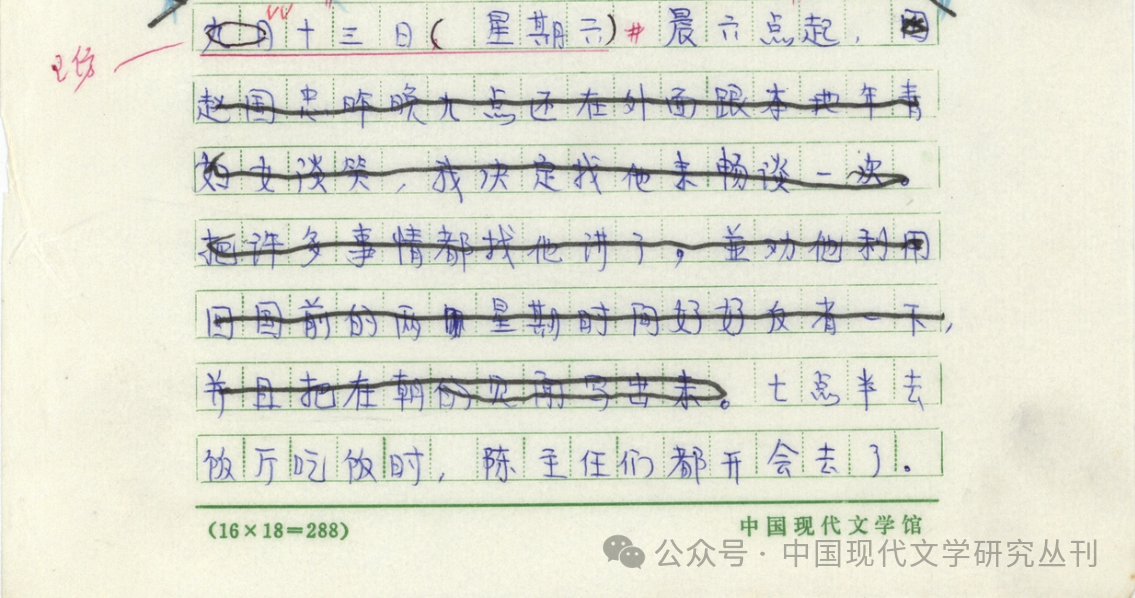 九月十三日(星期六)# 晨六点起，因
赵国忠昨晚九点还在外面跟本地年青
妇女谈笑，我决定找他来畅谈一次。
把许多事情都找他讲了，並劝他利用
回国前的两个星期时间好好反省一下，
并且把在朝的见闻写出来。七点半去
饭厅吃饭时，陈主任们都开会去了。
(16×18=288)
中国现代文学馆
公众号·中国现代文学研究丛刊